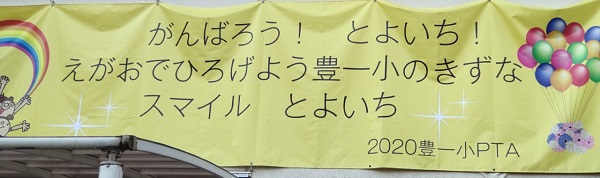 がんばろう！　とよいち！
えがおでひろげよう豊一小のきずな
スマイル　とよいち
2020豊一小PTA